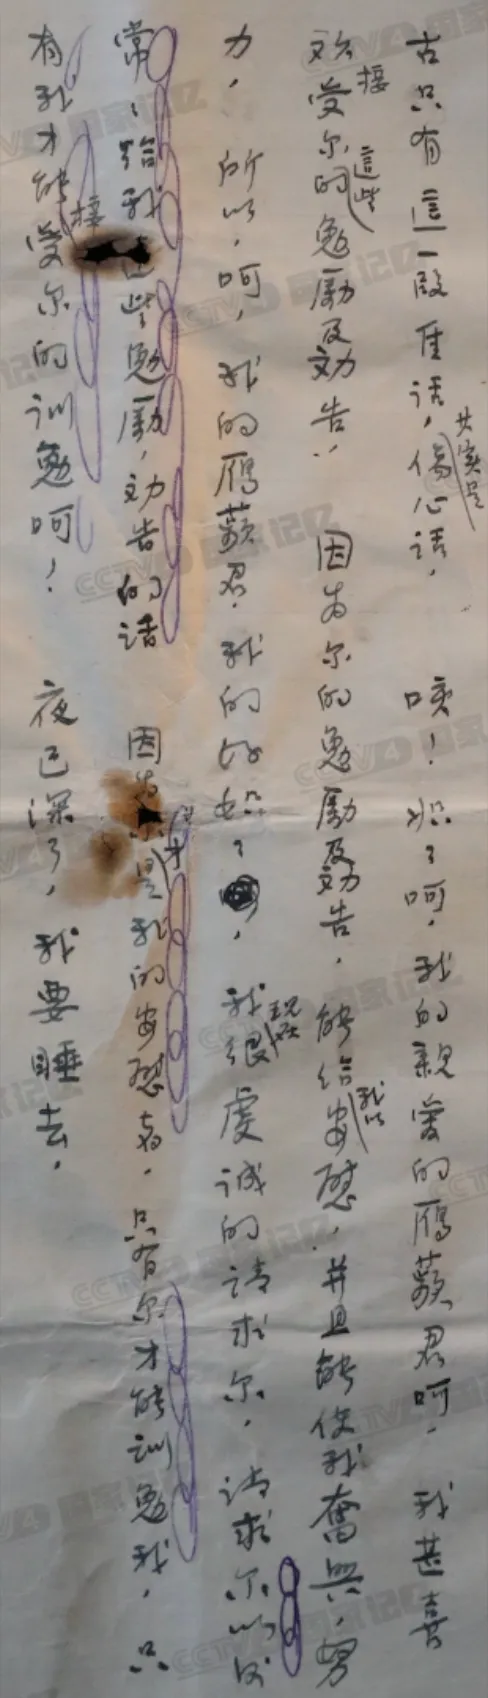 古只有這一段隹话，傷心话，其实是 唉！姐々呵，我的親爱的鴈蘋君呵，我甚喜
欢接受尔的這些勉励及劝告，因为尔的勉励及劝告，能给我以安慰，并且能使我奮興，努
力，所以，呵，我的鴈蘋君，我的好姐々，我现在很虔诚的请求尔，请求尔以后
常，给我這些勉励，劝告的话 因为尔是我的安慰者，只有尔才能训勉我，只
有我才能接受尔的训勉呵！ 夜已深了，我要睡去，
CCTV4 国家记忆